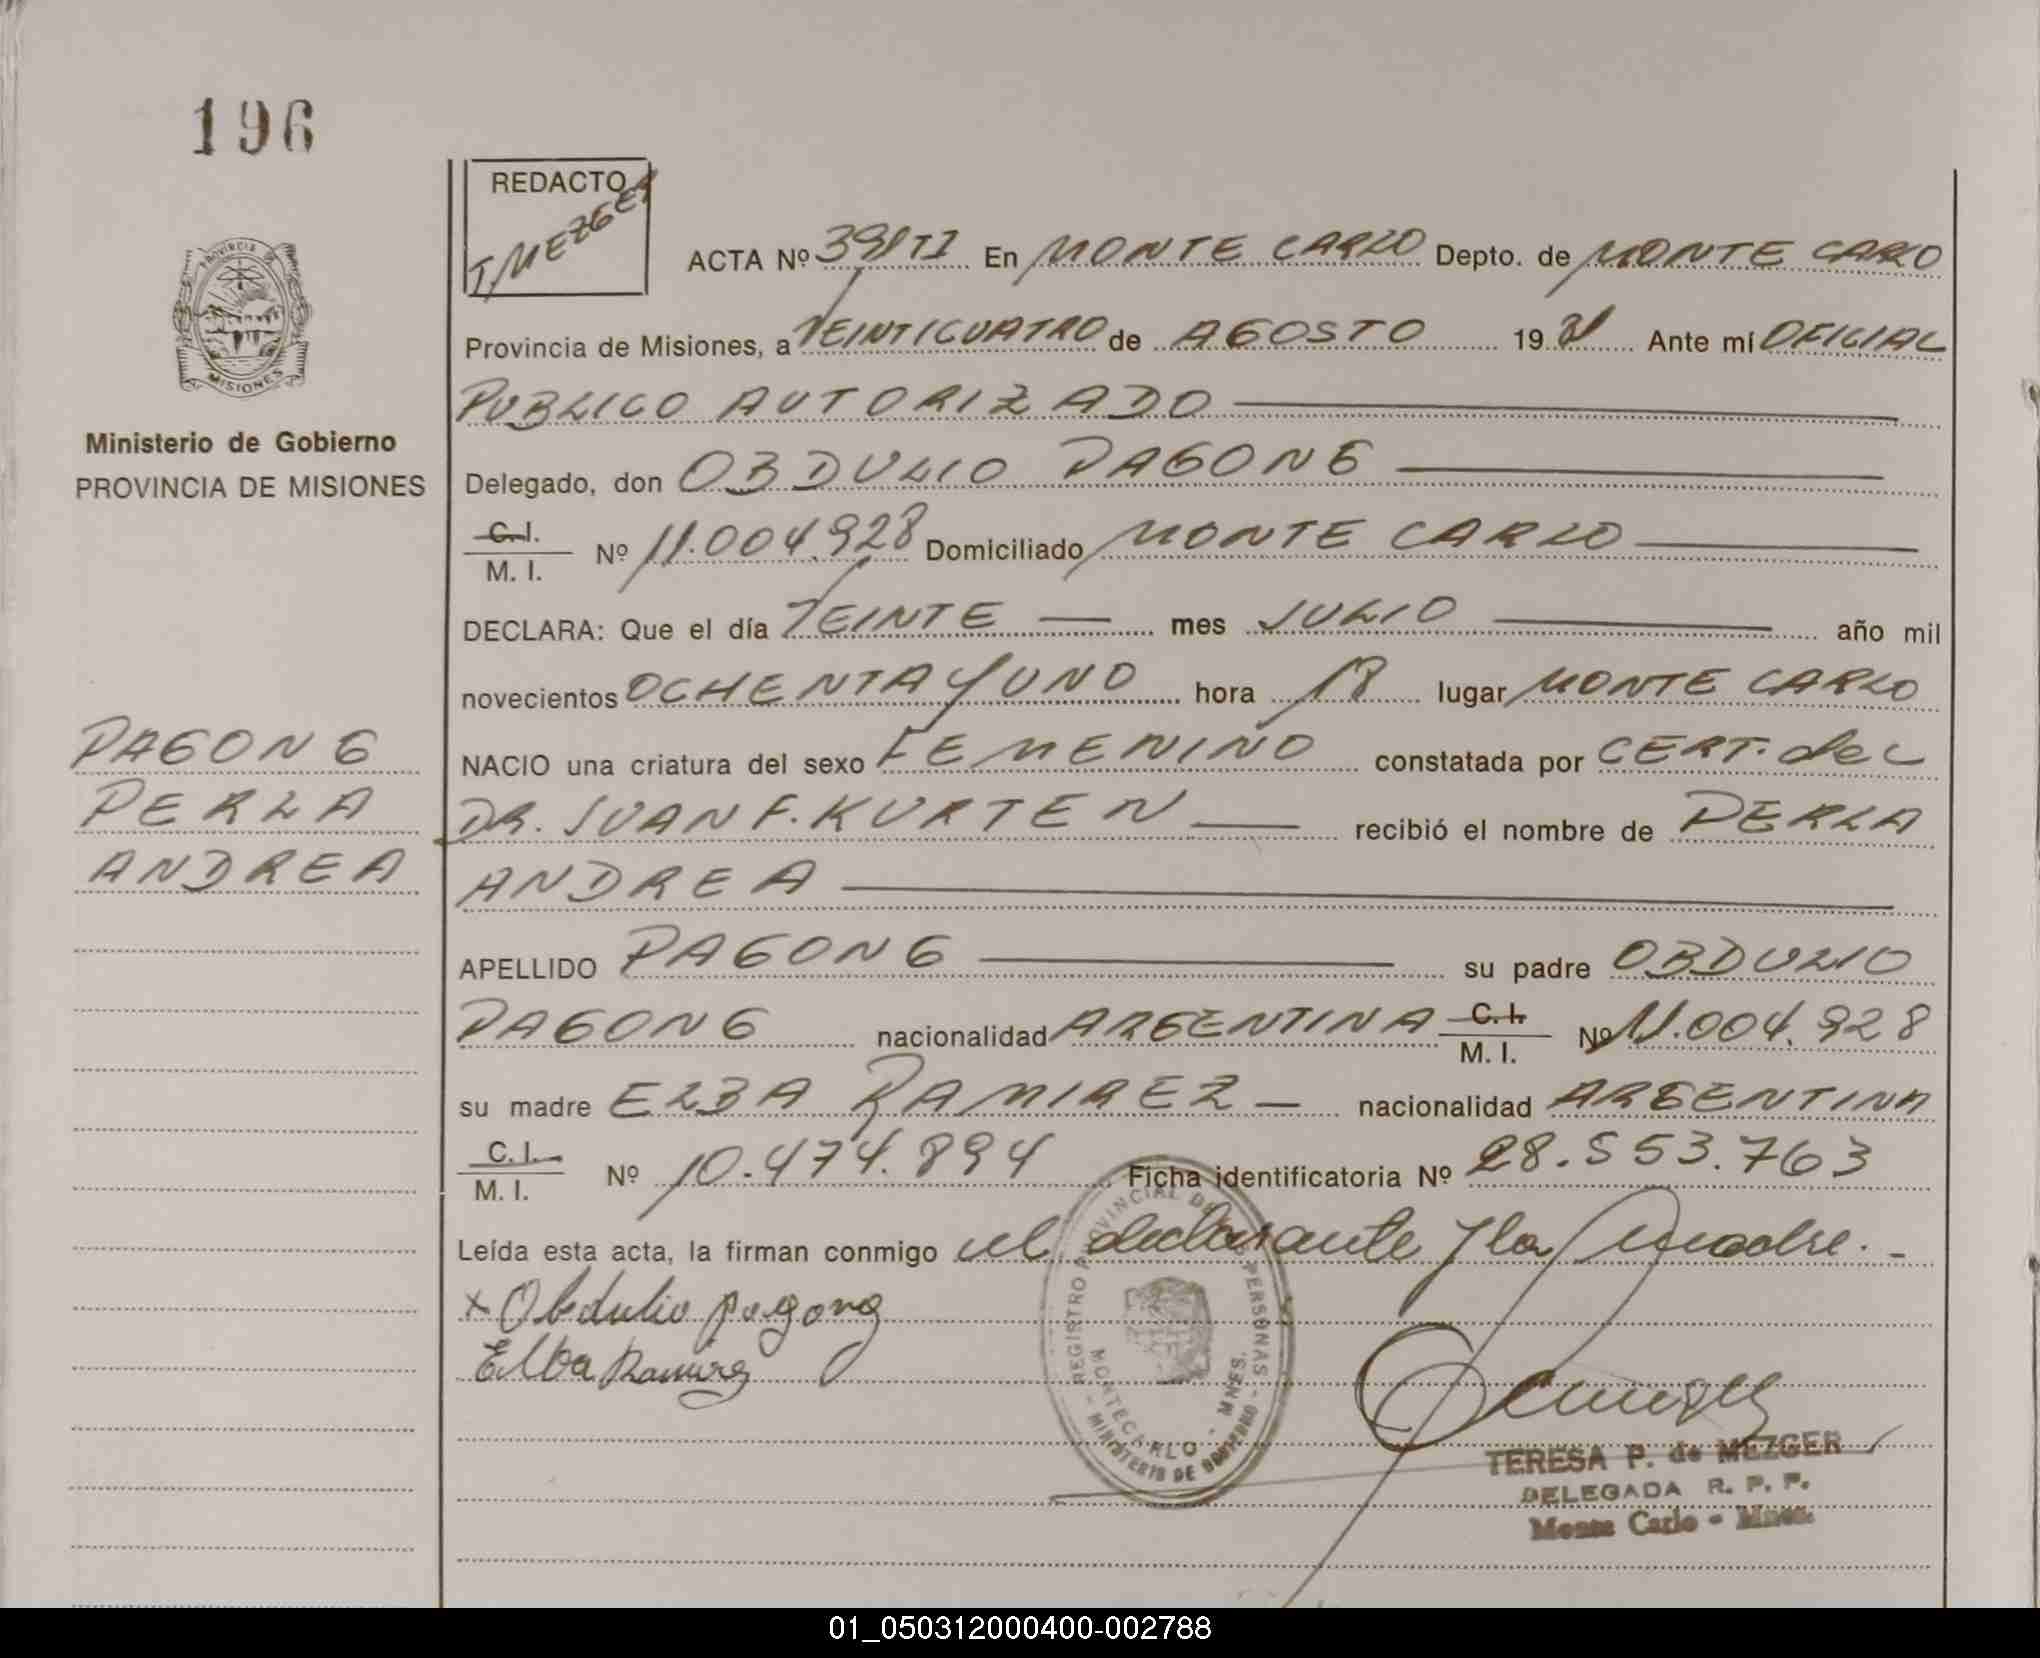 196
REDACTO
T. MEZGER
ACTA Nº 391 TI En MONTE CARLO Depto. de MONTE CARLO
Provincia de Misiones, a VEINTICUATRO de AGOSTO 19 81 Ante mí OFICIAL
PUBLICO AUTORIZADO
PROVINCIA
MISIONES
Ministerio de Gobierno
PROVINCIA DE MISIONES
Delegado, don OBDULIO PAGONG
C.I.
M. I. Nº 11.004.928 Domiciliado MONTE CARLO
DECLARA: Que el día VEINTE mes JULIO año mil
novecientos OCHENTA Y UNO hora 18 lugar MONTE CARLO
PAGONG
PERLA
ANDREA
NACIO una criatura del sexo FEMENINO constatada por CERT. del
DR. JUAN F. KURTEN recibió el nombre de PERLA
ANDREA
APELLIDO PAGONG su padre OBDULIO
PAGONG nacionalidad ARGENTINA C.I. M. I. Nº 11.004.928
su madre ELBA RAMIREZ nacionalidad ARGENTINA
C.I.
M. I. Nº 10.474.894 Ficha identificatoria Nº 28.553.763
Leída esta acta, la firman conmigo el declarante y la Madre.
x Obdulio pagong
Elba Ramirez
REGISTRO PROVINCIAL DE LAS PERSONAS
MONTECARLO - MNES.
MINISTERIO DE GOBIERNO
TERESA P. de MEZGER
DELEGADA R. P. P.
Monte Carlo - Mnes.
01_050312000400-002788